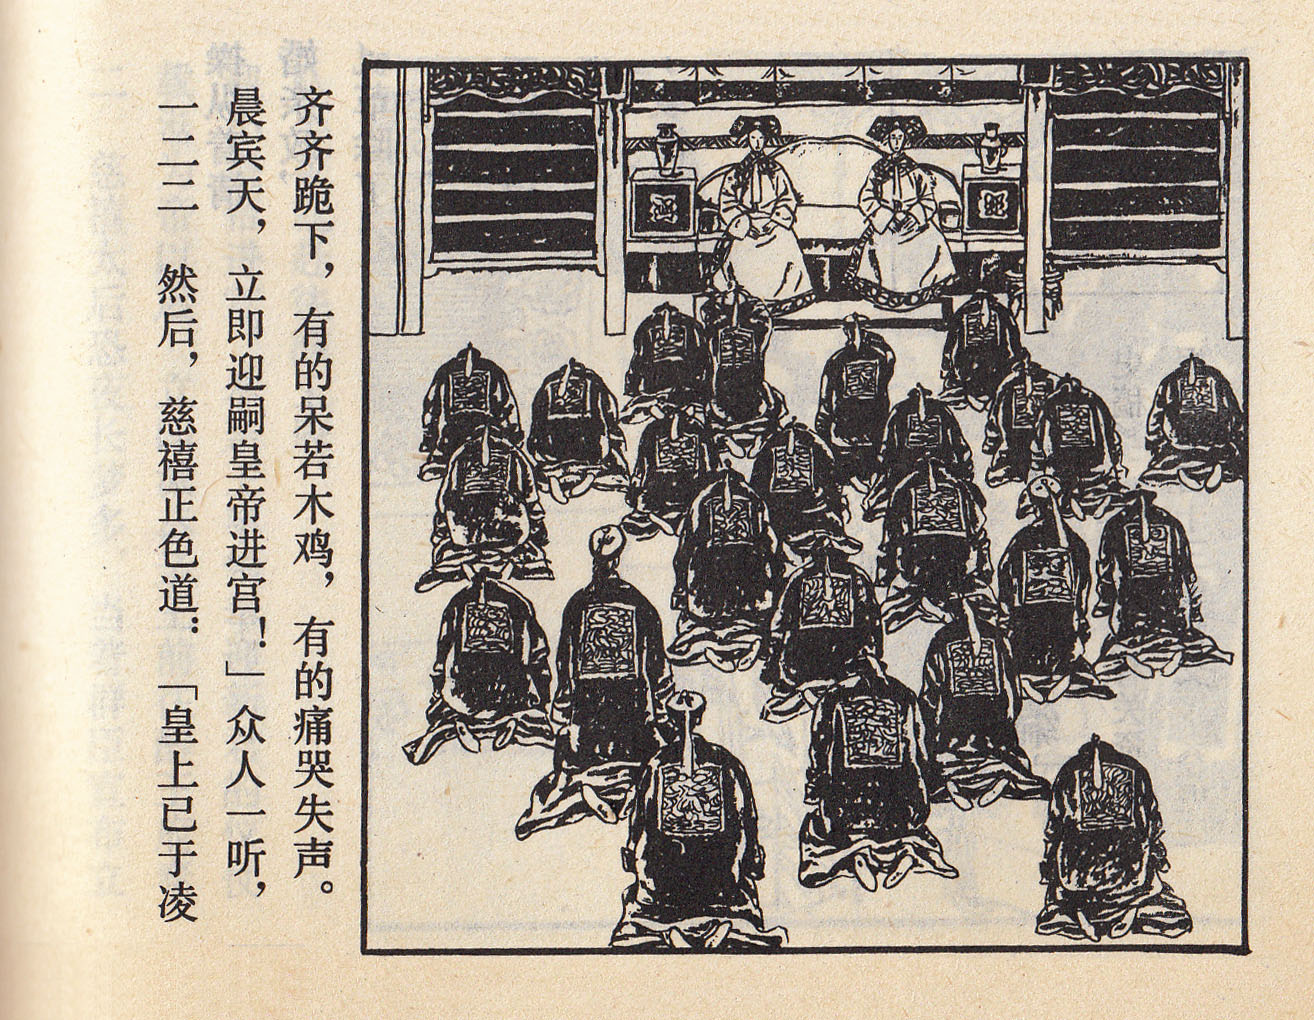 一二二 然后，慈禧正色道：「皇上已于凌
晨宾天，立即迎嗣皇帝进宫！」众人一听，
齐齐跪下，有的呆若木鸡，有的痛哭失声。